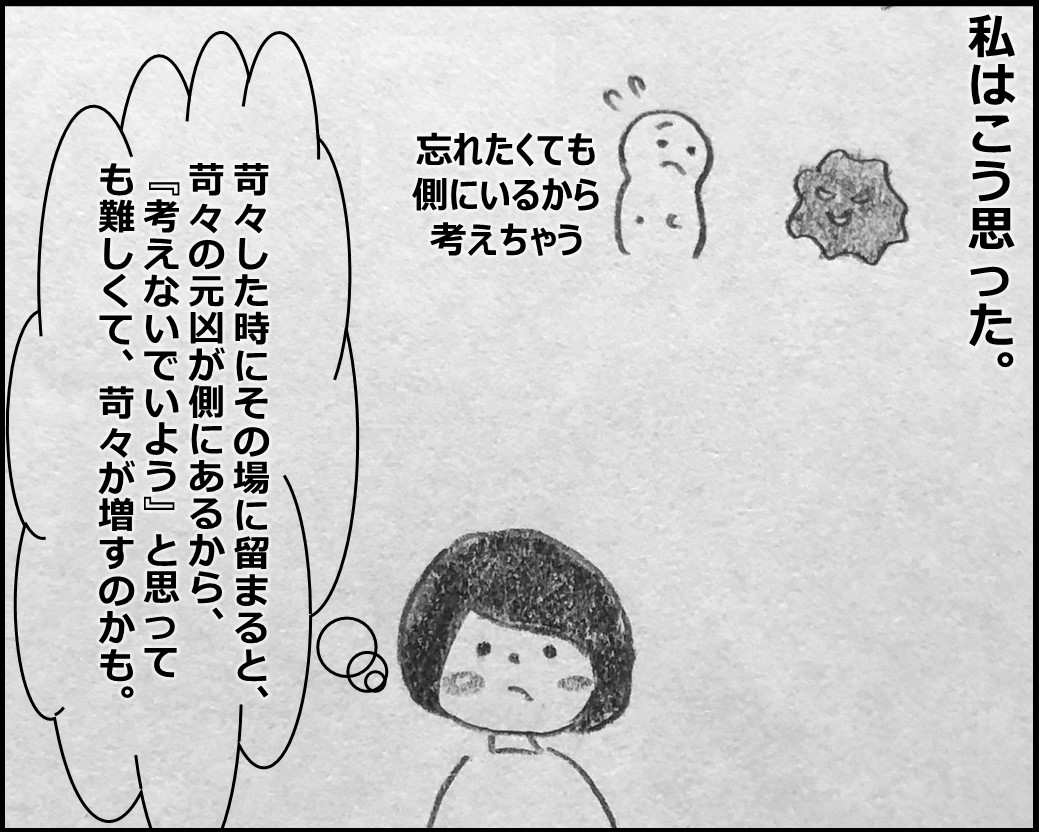 私はこう思った。
忘れたくても
側にいるから
考えちゃう
苛々した時にその場に留まると、
苛々の元凶が側にあるから、
『考えないでいよう』と思って
も難しくて、苛々が増すのかも。